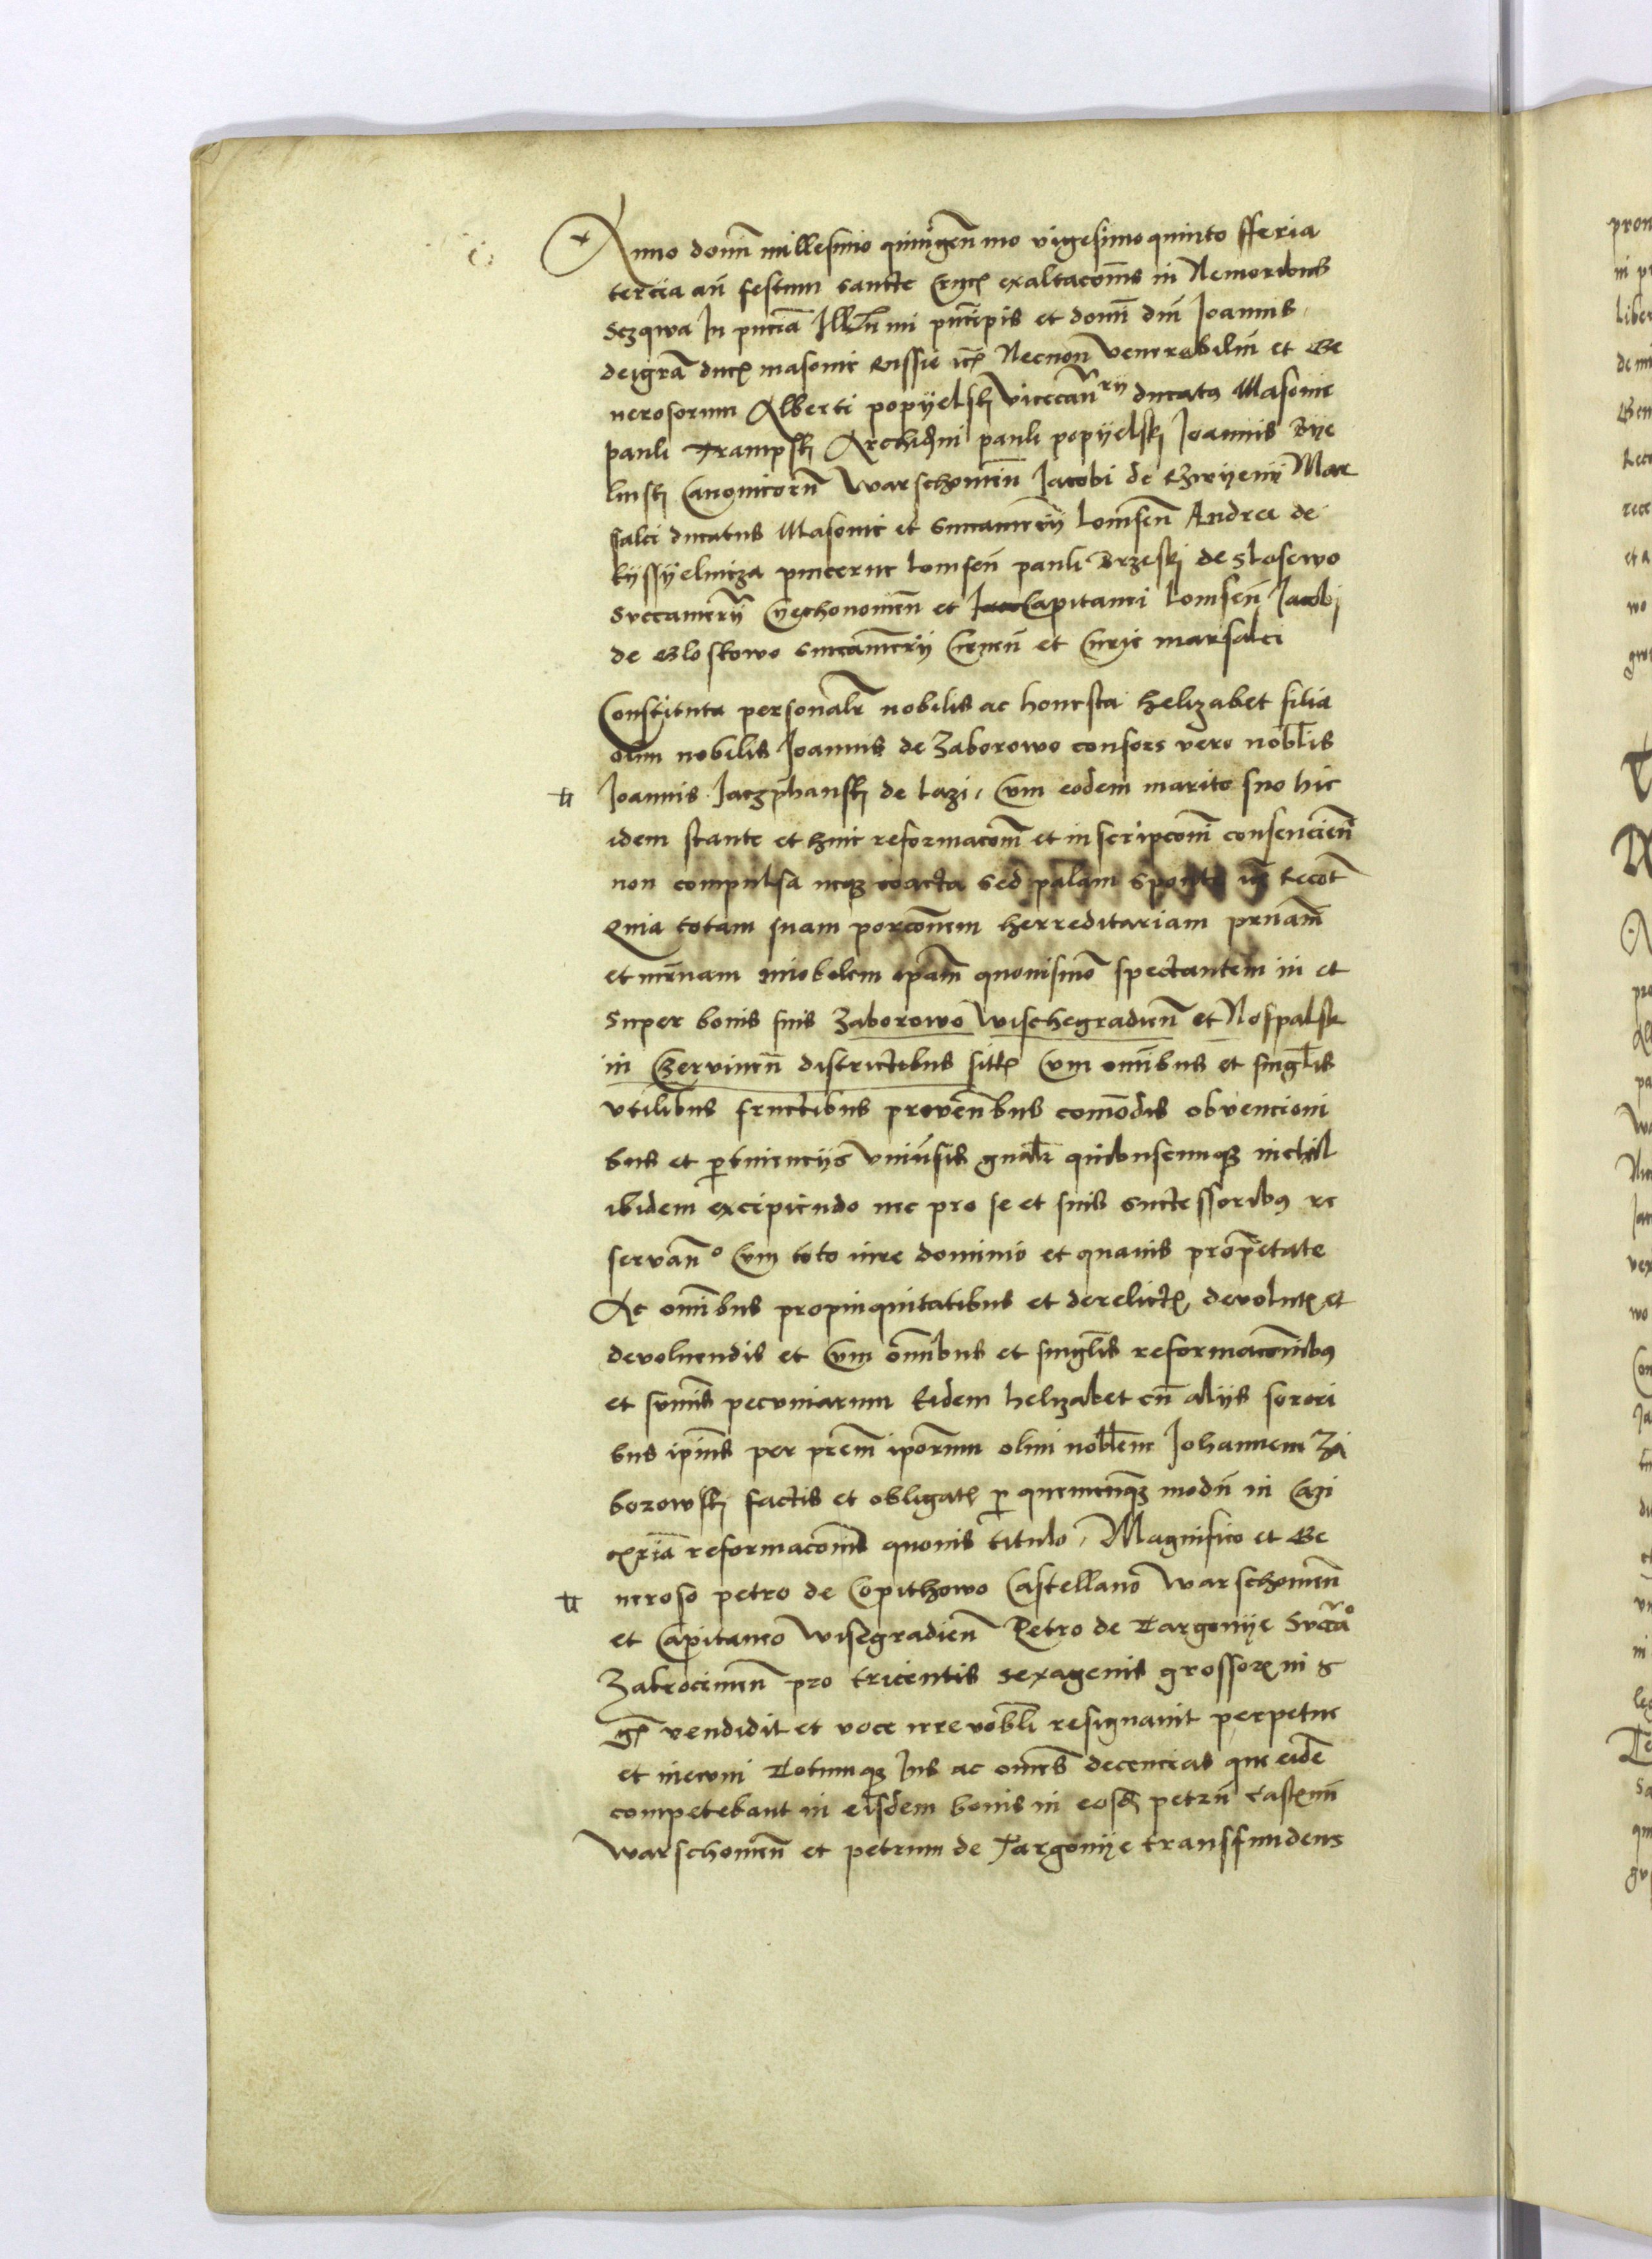 Anno domī millesimo quingeñmo vigesimo quinto fferia
tercia añ festum sancte Crucꝭ exaltacōnis in Nemoribus
Sczqwa In pñcia Illr̄mi prīcipis et domī dnī Joannis
deigrā ducꝭ masovie Russie ꝛcꝭ Necnon Venerabiliū et Ge
nerosorum Alberti popyelskj Vicecanr̄ij ducatꝰ Masovie
pauli Archidni pauli popyelskj Joannis Bye
linskj Canonicorū Warschovieñ Jacobi de Mar
salci ducatus Masovie et Succamerij Lomseñ Andree de
kyssyelnicza pincerne Lomseñ pauli Brzeskj de Slosewo
Succamerij Cyechonovieñ et Capitanei Lomseñ Jacobi
de Gloskowo Succamerij Cerneñ et Curie marsalci
Constituta personalr̄ nobilis ac honesta helizabet filia
olim nobilis Joannis de Zaborowo consors vero nobl̄is
Joannis de Lazi, Cum eodem marito suo hic
idem stante et huic reformacōni et inscripcōni conscencieñ
non compulsa neqꝫ coacta sed palam sponte Recōt
Quia totam suam porcōnem herreditariam prn̄am
et mr̄nam quovismō spectantem in et
super bonis suis Zaborowo Wischegradieñ et Nospalsk
in Czervineñ districtibus sittꝭ Cum omībus et singl̄is
vtilibus fructibus proven̄bus comōdis obvencioni
bus et ꝑtinencijs Vniūsis gnalr̄ quibuscumqꝫ nichil
ibidem excipiendo nec pro se et suis successoribꝰ re
servan̄º Cum toto iure dominio et quavis prop̄etate
Ac omībus propinquitatibus et derelictꝭ, devolutꝭ et
devoluendis et Cum ōmibus et singl̄is reformacōnibꝰ
et sum̄is pecuniarum Eidem helizabet cū alijs sorori
bus ip̄ius per pr̄em ip̄orum olim nobl̄em Johannem Za
borowskj factis et obligatꝭ ꝑ quemcunqꝫ modū in
reformacōnis quovis titulo, Magnifico et Ge
neroso petro de Copithowo Castellano Warschovieñ
et Capitaneo Wisegradieñ Petro de Targonije Succaº
Zakrocimieñ pro tricentis sexagenis grossorꝭ in g
gꝭ vendidit et voce irrevōbl̄i resignavit perpetue
et inevum Totumqꝫ Jus ac omēs decencias que eidē
competebant in eisdem bonis in eosd̄ petrū castnū
Warschovieñ et petrum de Targonije transfundens